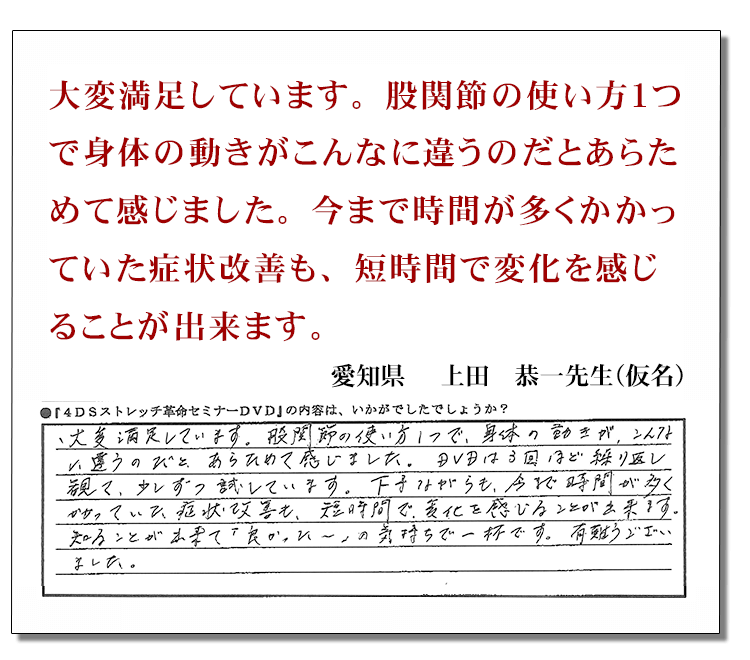 大変満足しています。股関節の使い方1つ
で身体の動きがこんなに違うのだとあらた
めて感じました。今まで時間が多くかかっ
ていた症状改善も、短時間で変化を感じ
ることが出来ます。
愛知県 上田 恭一先生(仮名)
●『4DSストレッチ革命セミナーDVD』の内容は、いかがでしたでしょうか?
、大変満足しています。股関節の使い方1つで、身体の動きが、こんな
に違うのだと、あらためて感じました。DVDは3回ほど繰り返し
観て、少しずつ試しています。下手ながらも、今まで時間が多く
かかっていた、症状改善も、短時間で、変化を感じることが出来ます。
知ることが出来て「良かった〜」の気持ちで一杯です。有難うござい
ました。